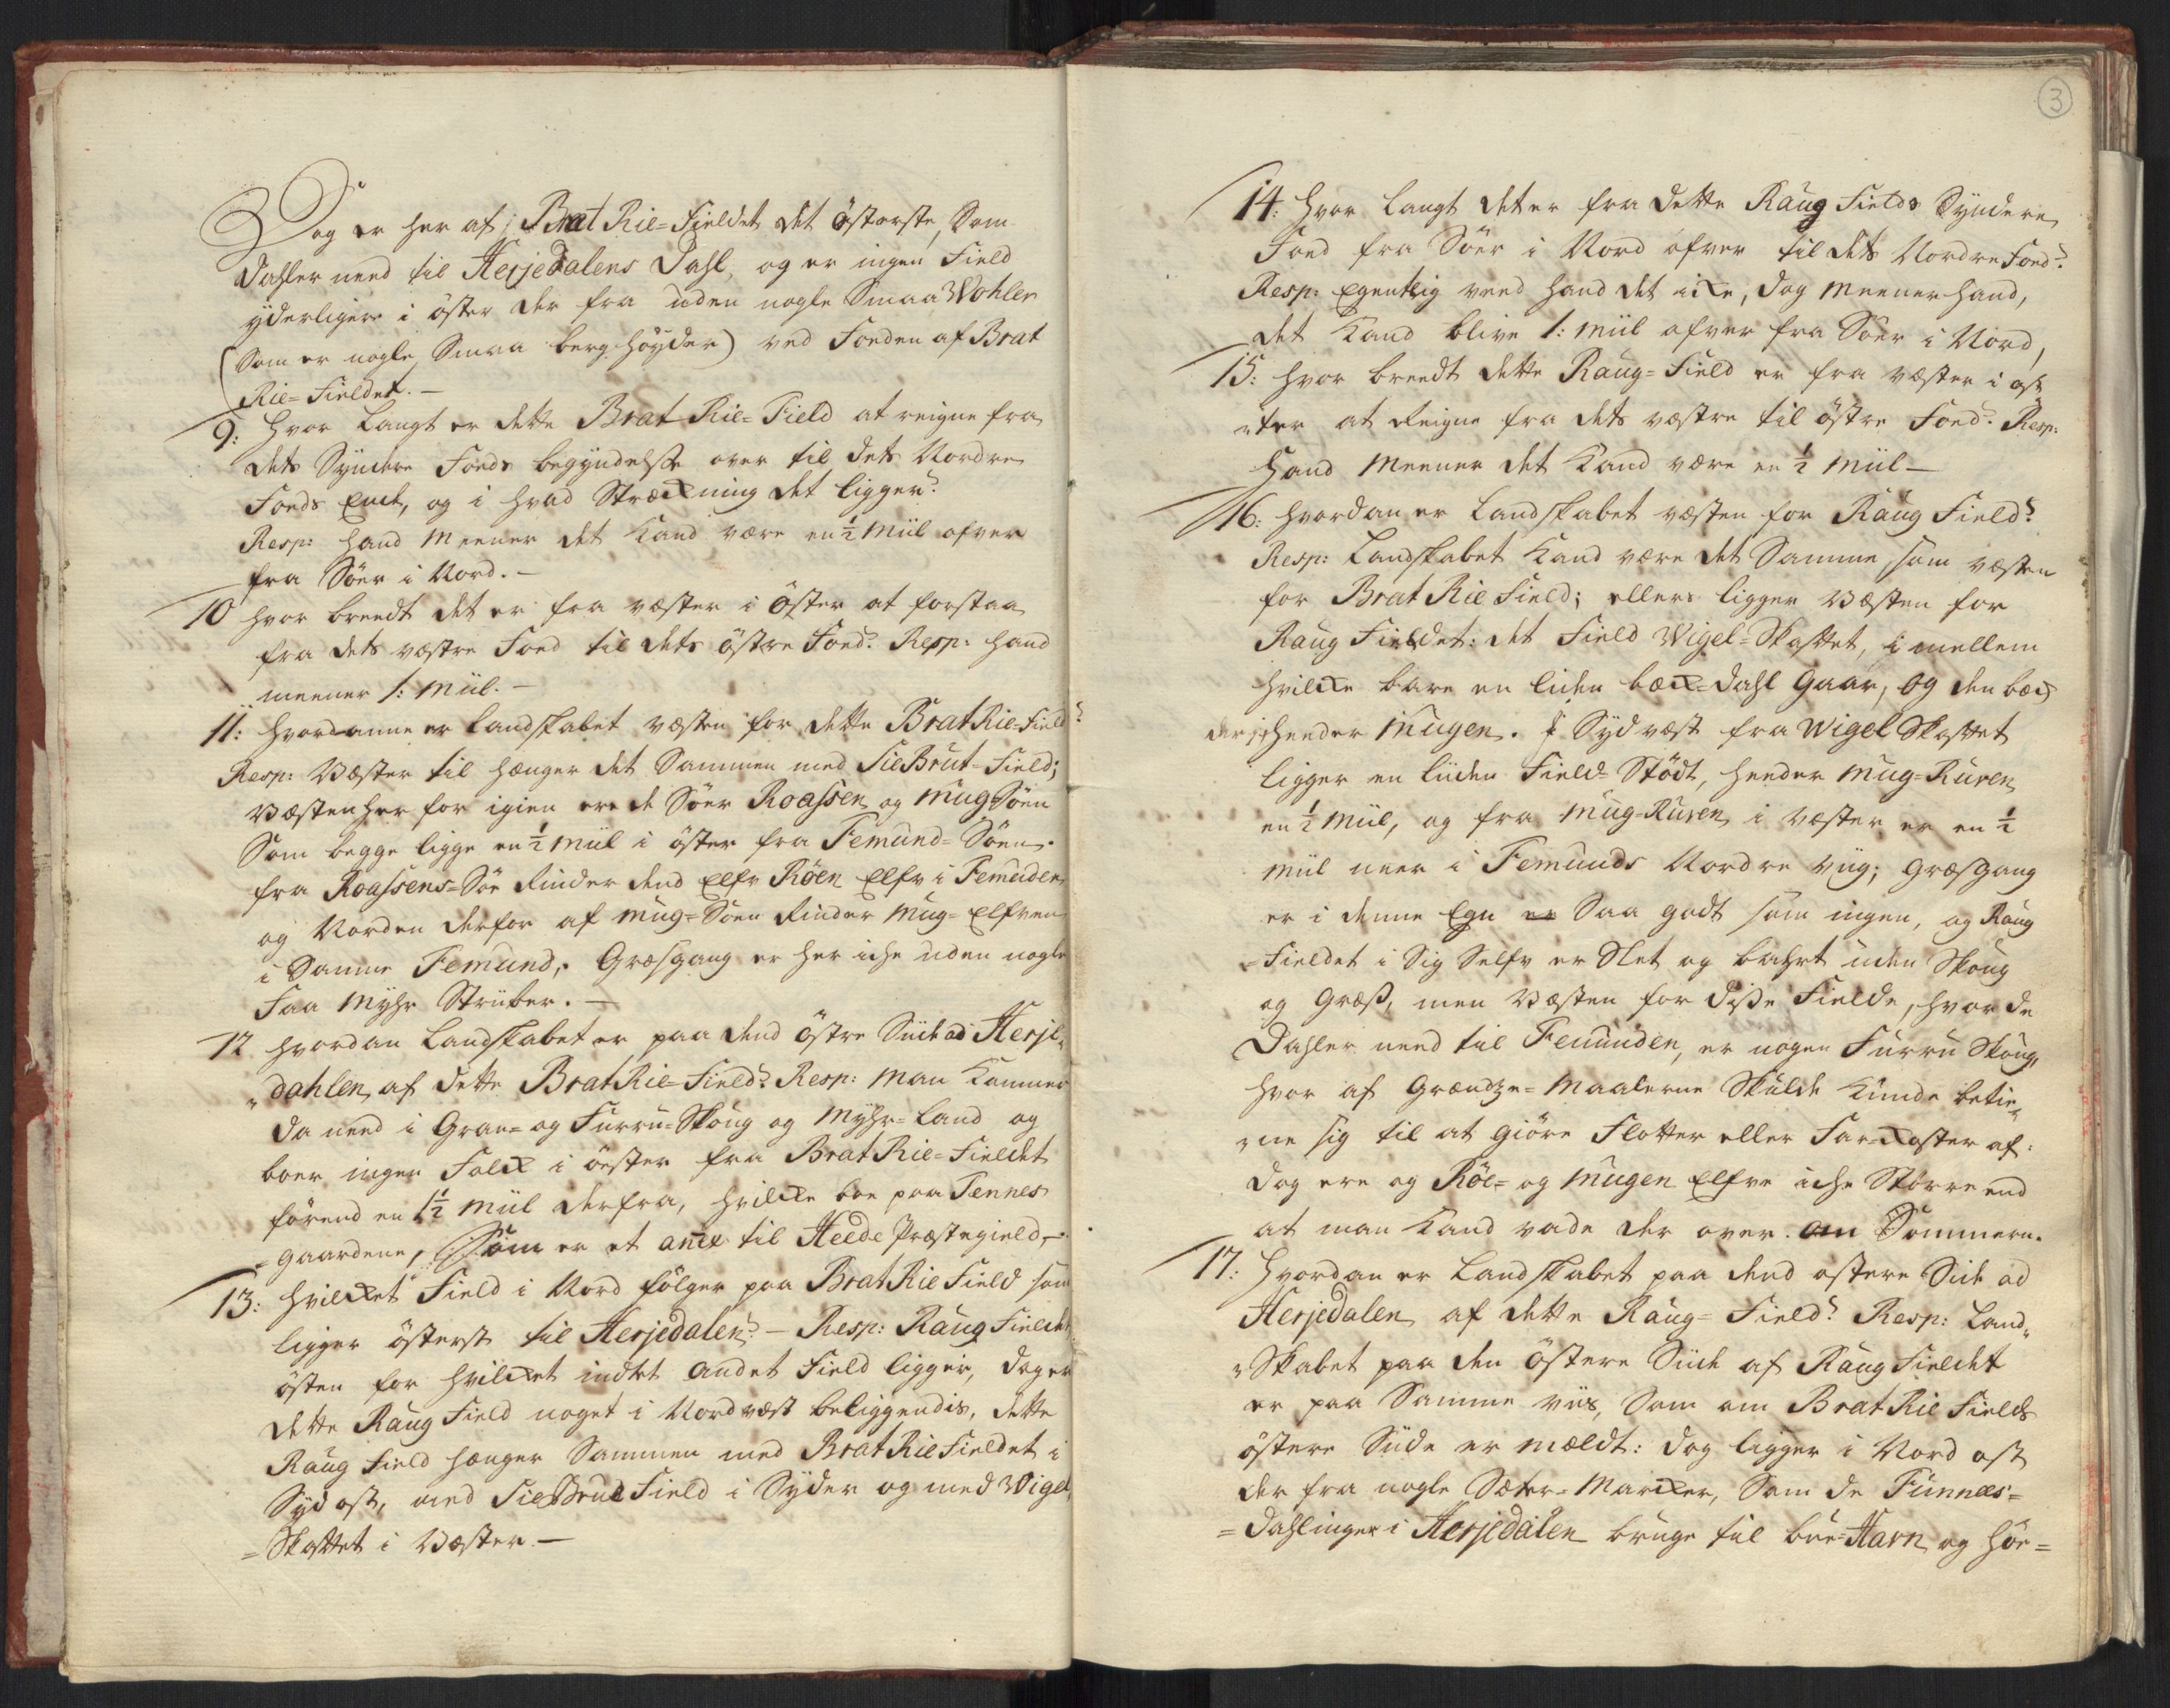 Dog er her af; Brat Rie=Fieldet det österste, Som
Dahler need til Herjedalens Dahl, og er ingen Field
yderligere i öster der fra uden nogle Smaa Wohler
(Som er nogle Smaa berg höyder) ved Foeden af Brat
Rie=Fieldet.—
9: Hvor Langt er dette Brat Rie=Field at reigne fra
dets Syndere Foeds begyndelsse over til dets Nordre
Foeds Ende, og i hvad Stræckning det ligger?
Resp: hand Meener det Kand være en ½ Miil ofver
fra Söer i Nord.—
10 hvor breedt det er fra væster i Öster at forstaa
fra dets væstre Foed til dets östre Foed? Resp: hand
meener 1: Miil.—
11: hvordanne er landskabet væsten for dette Brat Rie=Field?
Resp: Væster til hænger det Sammen med SieBrut=Field;
Væsten her for igien ere de Söer Roassen og Mug Söen
Som begge ligge en ½ Miil i öster fra Femund=Söen.
fra Roassens=Söe Rinder dend Elfv Röen Elfv i Femuden
og Norden derfor af Mug=Söen Rinder Mug=Elfven
i Samme Femund, Græsgang er her iche uden nogle
Faa Myhr Strüber.—
12 hvordan Landskabet er paa dend östre Siide ad Herje„
„dahlen af dette BratRie=Field? Resp: Man Kommer
da need i Gran= og Furru=Skoug og Myhr=Land og
boer ingen Folck i öester fra Brat Rie=Fieldet
förend en 1½ Miil derfra, hvilcke boe paa Tennes
=gaardene, Som er et anex til Heede Præstegield,—
13: hvilcket Field i Nord fölger paa Brat Rie Field som
ligger österst til Herjedalen?— Resp: Raug Fieldet
östen for hvilcket indtet andet Field ligger, dog er
dette Raug Field noget i Nordvæst beliggendis, dette
Raug Field hænger Sammen med Brat Rie Fieldet i
Syd ost, med SieBrud Field i Syder og med Wigel
=Skaftet i Væster.—
3
14: hvor langt det er fra dette Raug Fields Syndere
Foed fra Söer i Nord ofver til dets Nordre Foed?
Resp: Egentlig veed hand det icke, dog Meener hand,
det Kand blive 1: Miil ofver fra Söer i Nord,
15: hvor breedt dette Raug=Field er fra væster i ös„
„ter at Reigne fra dets væstre til östre Foed? Resp:
Hand Meener det Kand være en ½ Miil—
16: hvordan er Landskabet væsten for Raug Field?
Resp: Landskabet Kand være det Samme, som væsten
for Brat Rie Field; ellers ligger Væsten for
Raug Fieldet: det Field Wigel=Skaftet, i mellem
hvilcke bare en liden bæck=Dahl Gaar, og den bæck
der; Heeder Mugen. I Sydvæst fra Wigel Skaftet
ligger en liiden Field=Stödt, heeder Mug=Ruven
en ½ Miil, og fra Mug=Ruven i væster er en ½
Miil neer i Femunds Nordre Viig; Græsgang
er i denne Egn Saa godt som ingen, og Raug
=Fieldet i Sig Selfv er Slet og bahrt uden Skoug
og Græs, men Væsten for disse Fielde, hvor de
Dahler need til Femunden, er nogen Furru Skoug,
hvor af Grændze=Maalerne Skulde Kunde betie„
„ne sig til at giöre Flotter eller Far=Koster af:
dog ere og Röe= og Mugen Elfve iche Större end
at man Kand vade der over om Sommeren.
17: Hvordan er Landskabet paa dend östere Side ad
Herjedalen af dette Raug=Field? Resp: Land„
„Skabet paa den Östere Siide af Raug Fieldet
er paa Samme viis, Som om Brat Rie Fields
östere Siide er meldt: dog ligger i Nord ost
der fra nogle Sæter=Marcker, Som de Funnes=
=Dahlinger i Herjedalen bruge til bue=Havn og Höe=